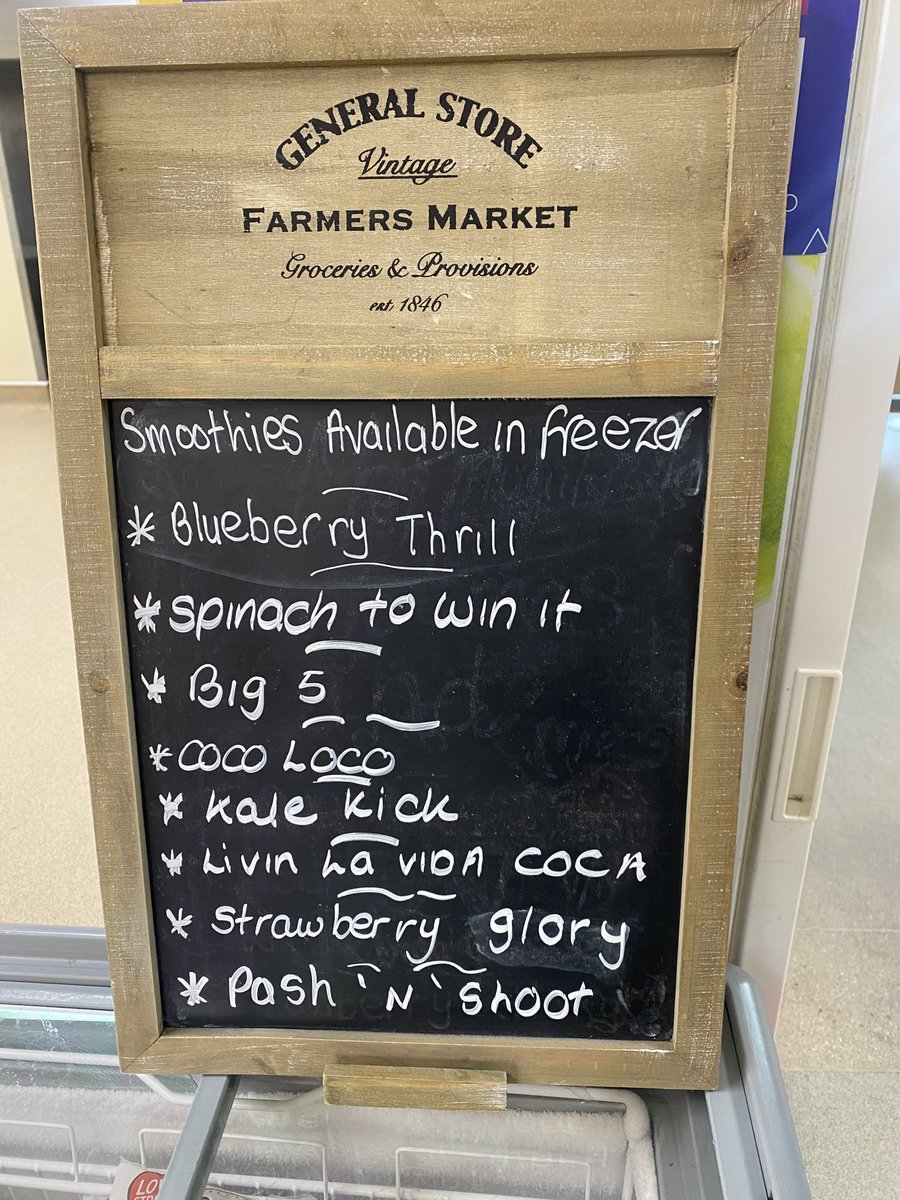 GENERAL STORE
Vintage
FARMERS MARKET
Groceries & Provisions
est 1846
Smoothies Available in freezer
* Blueberry Thrill
* Spinach to win it
* Big 5
* COCO LOCO
* Kale Kick
* Livin La VIDA COCA
* Strawberry glory
* Pash 'N' Shoot
LO